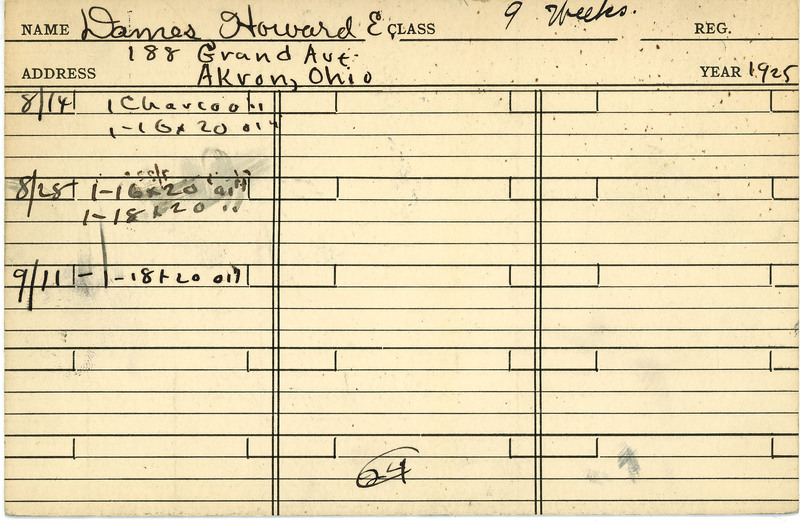 NAME Dames Howard E CLASS 9 Weeks. REG.
188 Grand Ave.
ADDRESS Akron, Ohio YEAR 1925
8/14 1 Charcoal
1-16x20 oil
8/28 1-16x20 oil
1-18x20 "
9/11 - 1-18x20 oil
64